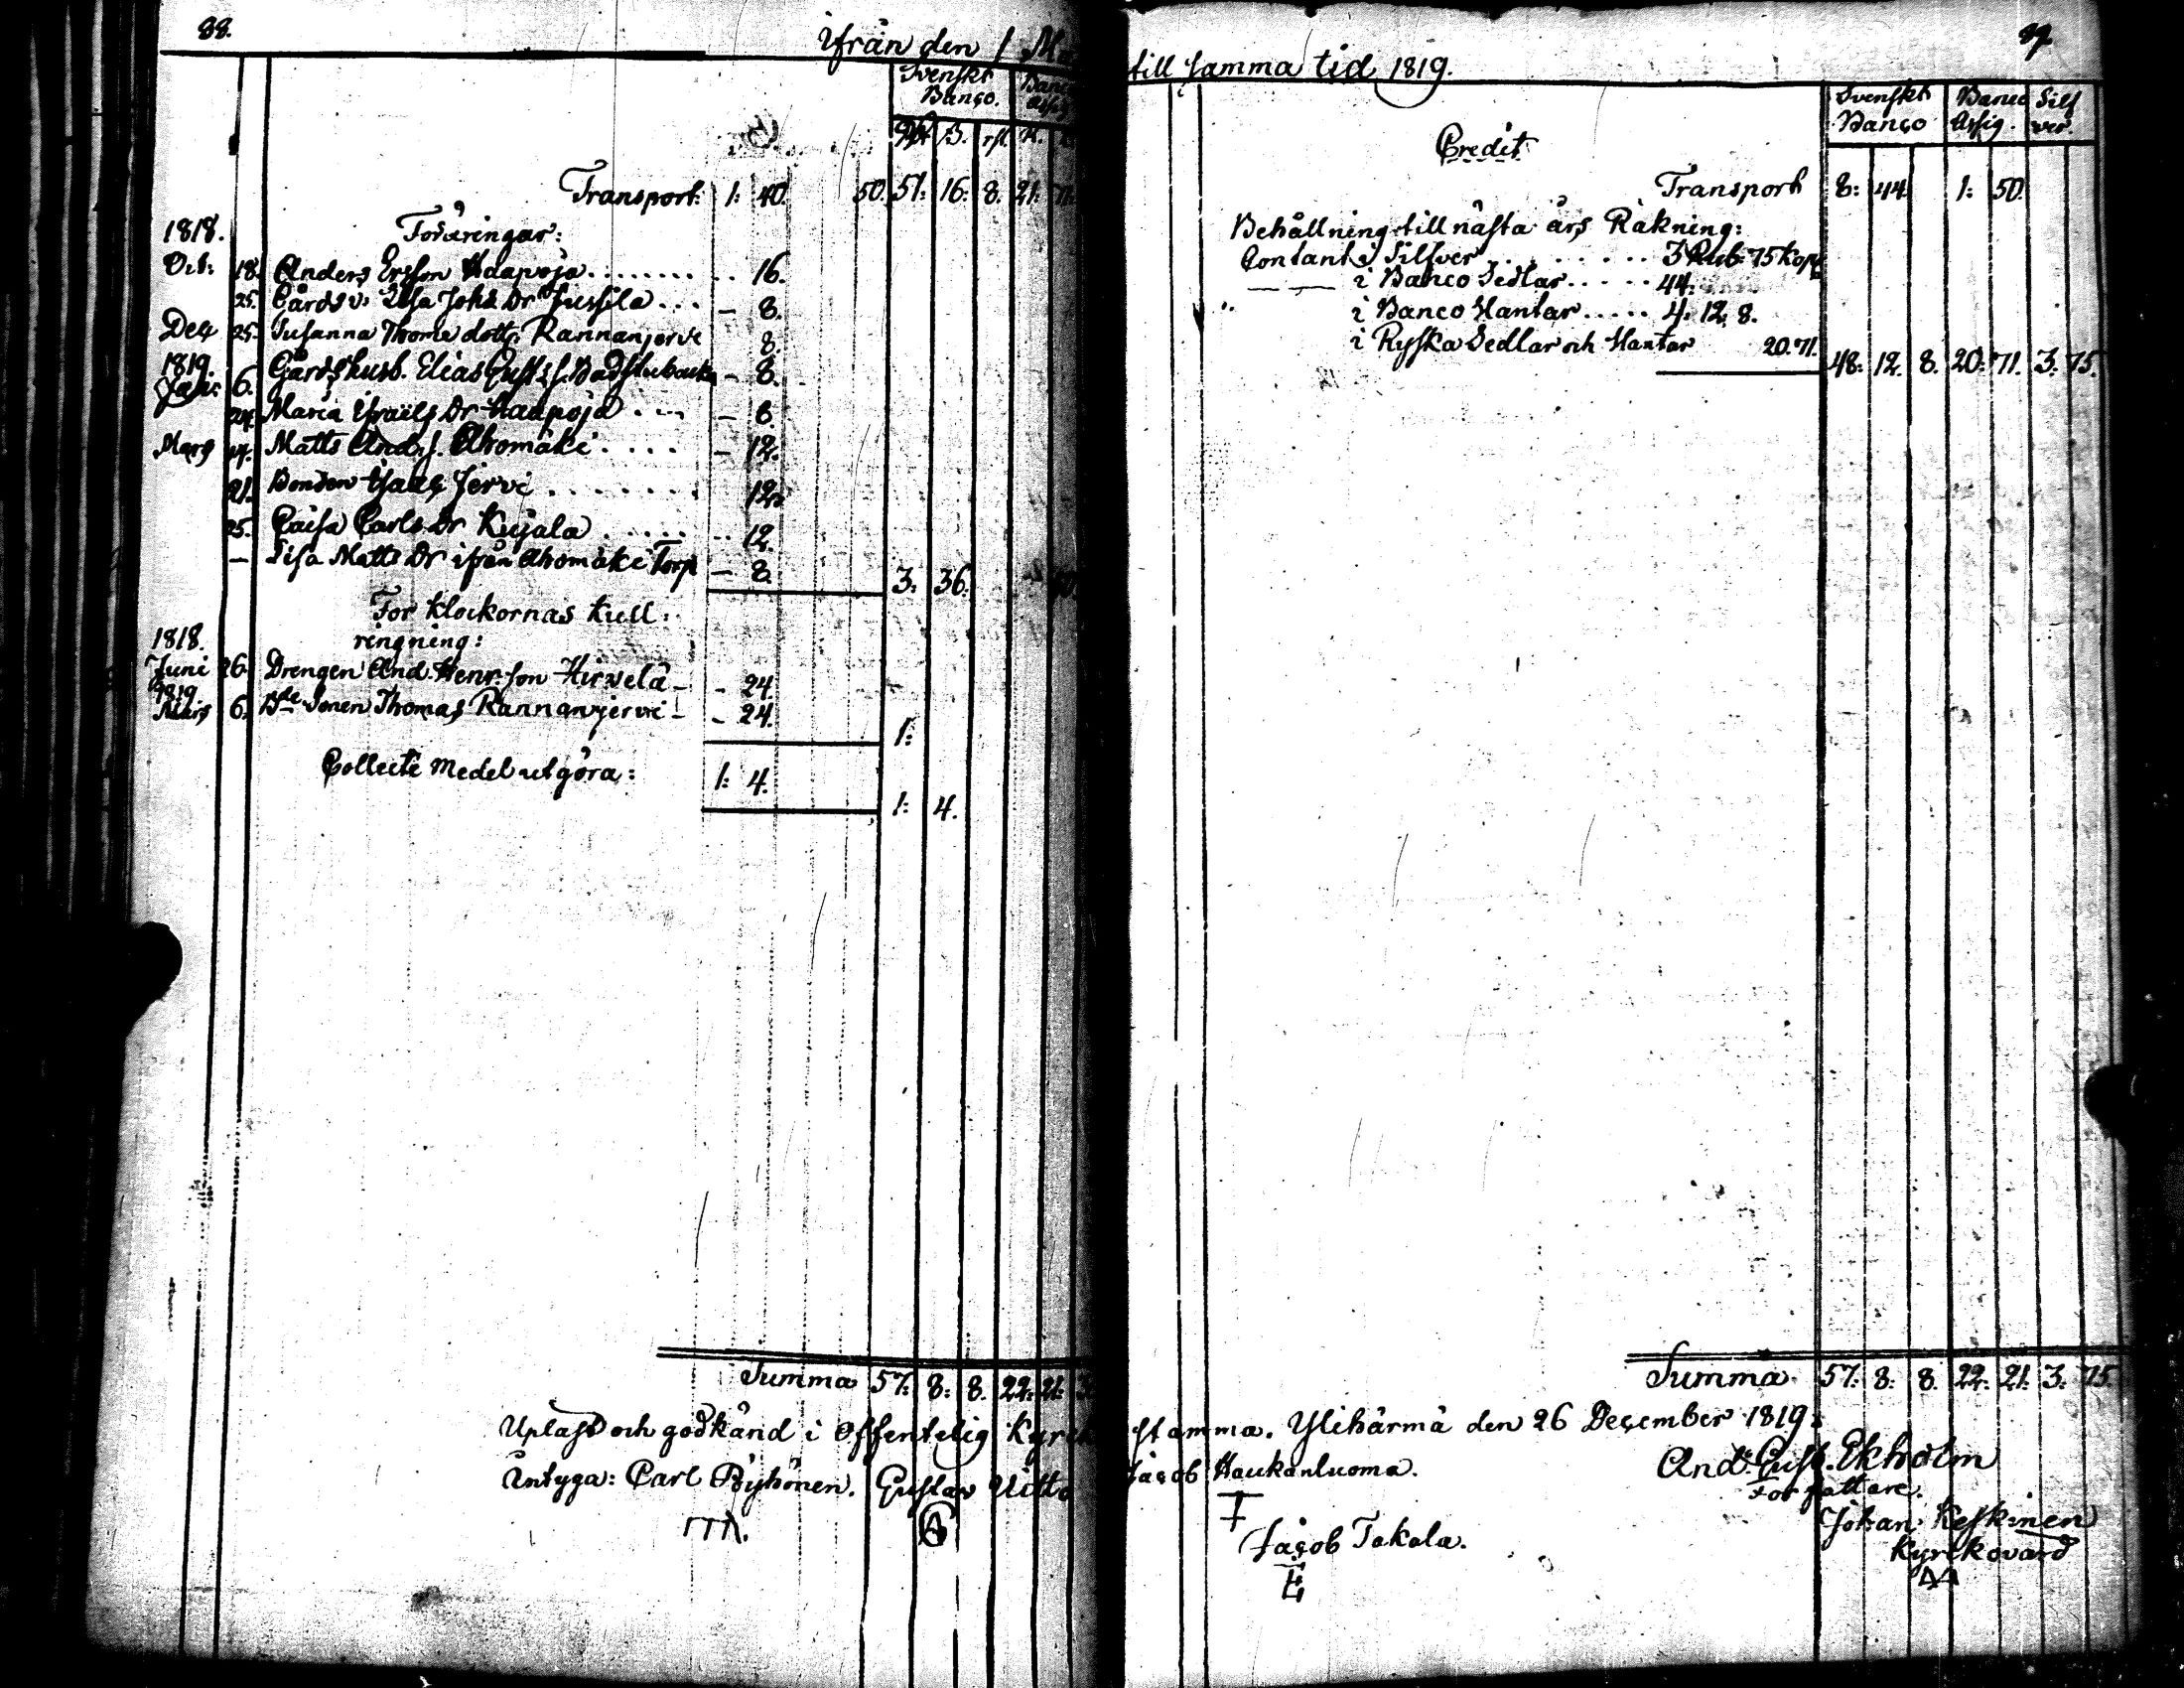 88.
ifrån den 1 Ma
Svenskt Banco. Banco Assig
Rdr ß. rst. R. K
Transport: 1: 40. 50. 51: 16: 8. 21: 71.
1818. Foräringar:
Oct: 18. Anders Ersson Haapoja ........ .. 16.
25. Gårds v: Lisa Johs Dr Jussila ... – 8.
Dec 25. Susanna Thomæ dottr Rannanjervi 8.
1819.
Janr: 6. Gårdshusb. Elias Gusts s. Badstubacka – 8.
24. Maria Israels Dr Haapoja .... – 8.
Mars 14. Matts And. s. Ahomäki .... – 12.
21. Bonden Isaac Jervi ........ 12.
25. Caisa Carls Dr Kujala ..... .. 12.
— Lisa Matts Dr ifrån Ahomäki Torp – 8.
3: 36. 50.
For Klockornas kull:
ringning:
1818.
Juni 26. Drengen And. Henr: son Hirvelä – - 24.
1819
Mars 6. Bde Sonen Thomas Rannanjervi – - 24.
1:
Collecte Medel utgöra: 1: 4.
1: 4.
Summa 57: 8: 8. 22: 21: 3.
Uplast och godkänd i offentelig Kyrck
Äntyga: Carl Pöyhönen. Gustav Uitto
89.
till samma tid 1819.
Svenskt Banco Banco Assig. Silfver.
Credit
Transport 8: 44. 1: 50.
Behållning till nästa års Räkning:
Contant i Silfver ........ 3 Rub: 75 kop
— — i Banco Sedlar ..... 44.
" i Banco Slantar ..... 4. 12. 8.
i Ryska Sedlar och Slantar 20. 71. 48: 12. 8. 20: 71. 3: 75.
Summa 57: 8: 8. 22: 21: 3: 75.
stamma. Ylihärmä den 26 December 1819:
Jacob Haukanluoma. And: Gust. Ekholm
Forfattare.
Jacob Takala. Johan Keskinen
Kyrckovärd